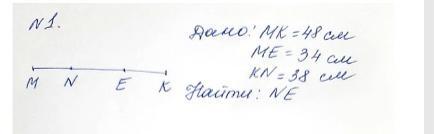 N1.
Дано: МК = 48 см
МЕ = 34 см
KN = 38 см
M N E K
Найти: NE